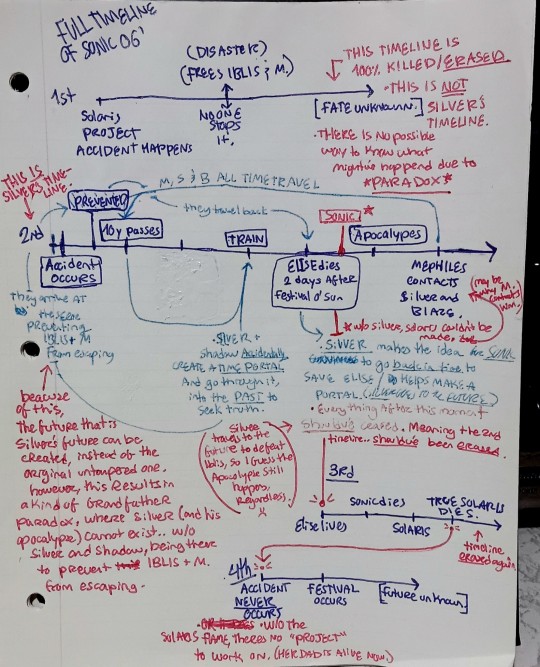 FULL TIMELINE
OF SONIC 06'
(DISASTER)
(FREES IBLIS & M.)
THIS TIMELINE IS
100% KILLED/ERASED.
1st
Solaris
PROJECT
ACCIDENT HAPPENS
NO ONE
STOPS
IT.
[FATE UNKNOWN.]
• THIS IS NOT
SILVER'S
TIMELINE.
• THERE IS NO possible
way to know what
might've happend due to
*PARADOX*
THIS IS
SILVER'S TIME-
LINE.
2nd
PREVENTED
M, S & B ALL TIME TRAVEL
they travel back
10y passes
TRAIN
SONIC *
Apocalypes
Accident
OCCURS
ELISE dies
2 days After
festival o' Sun
MEPHILES
CONTACTS
Silver and
BLAZE.
(may be
why M.
contacts
him.)
they arrive AT
the scene
preventing
IBLIS + M
From escaping
• SILVER +
Shadow Accidentally
CREATE A TIME PORTAL
And go through it,
into the PAST to
Seek truth.
*w/o silver, sdorrs couldn't be
made,
• SILVER makes the idea for SONIC
to go back in time to
SAVE ELISE / HELPS MAKE A
PORTAL.
• Everything After this moment
should've ceased. Meaning the 2nd
timeline.. should've been erased.
beacuse of
this,
The future that is
Silver's future can be
created, instead of the
original untampered one.
however, this Results in
a kind of Grandfather
paradox, where Silver (and his
apocalypse) cannot exist.. w/o
Silver and Shadow, being there
to prevent IBLIS + M.
from escaping.
Silver
travels to the
future to defeat
Iblis, so I guess the
Apocalypse still
happens,
Regardless.
3RD
Elise lives
Sonic dies
SOLARIS
TRUE SOLARIS
DIES.
timeline
erased again.
4th
ACCIDENT
NEVER
OCCURS
FESTIVAL
OCCURS
[future unknown.]
• W/O The
SOLARIS FLAME, theres no "PROJECT"
to work on. (HER DAD IS ALIVE NOW.)